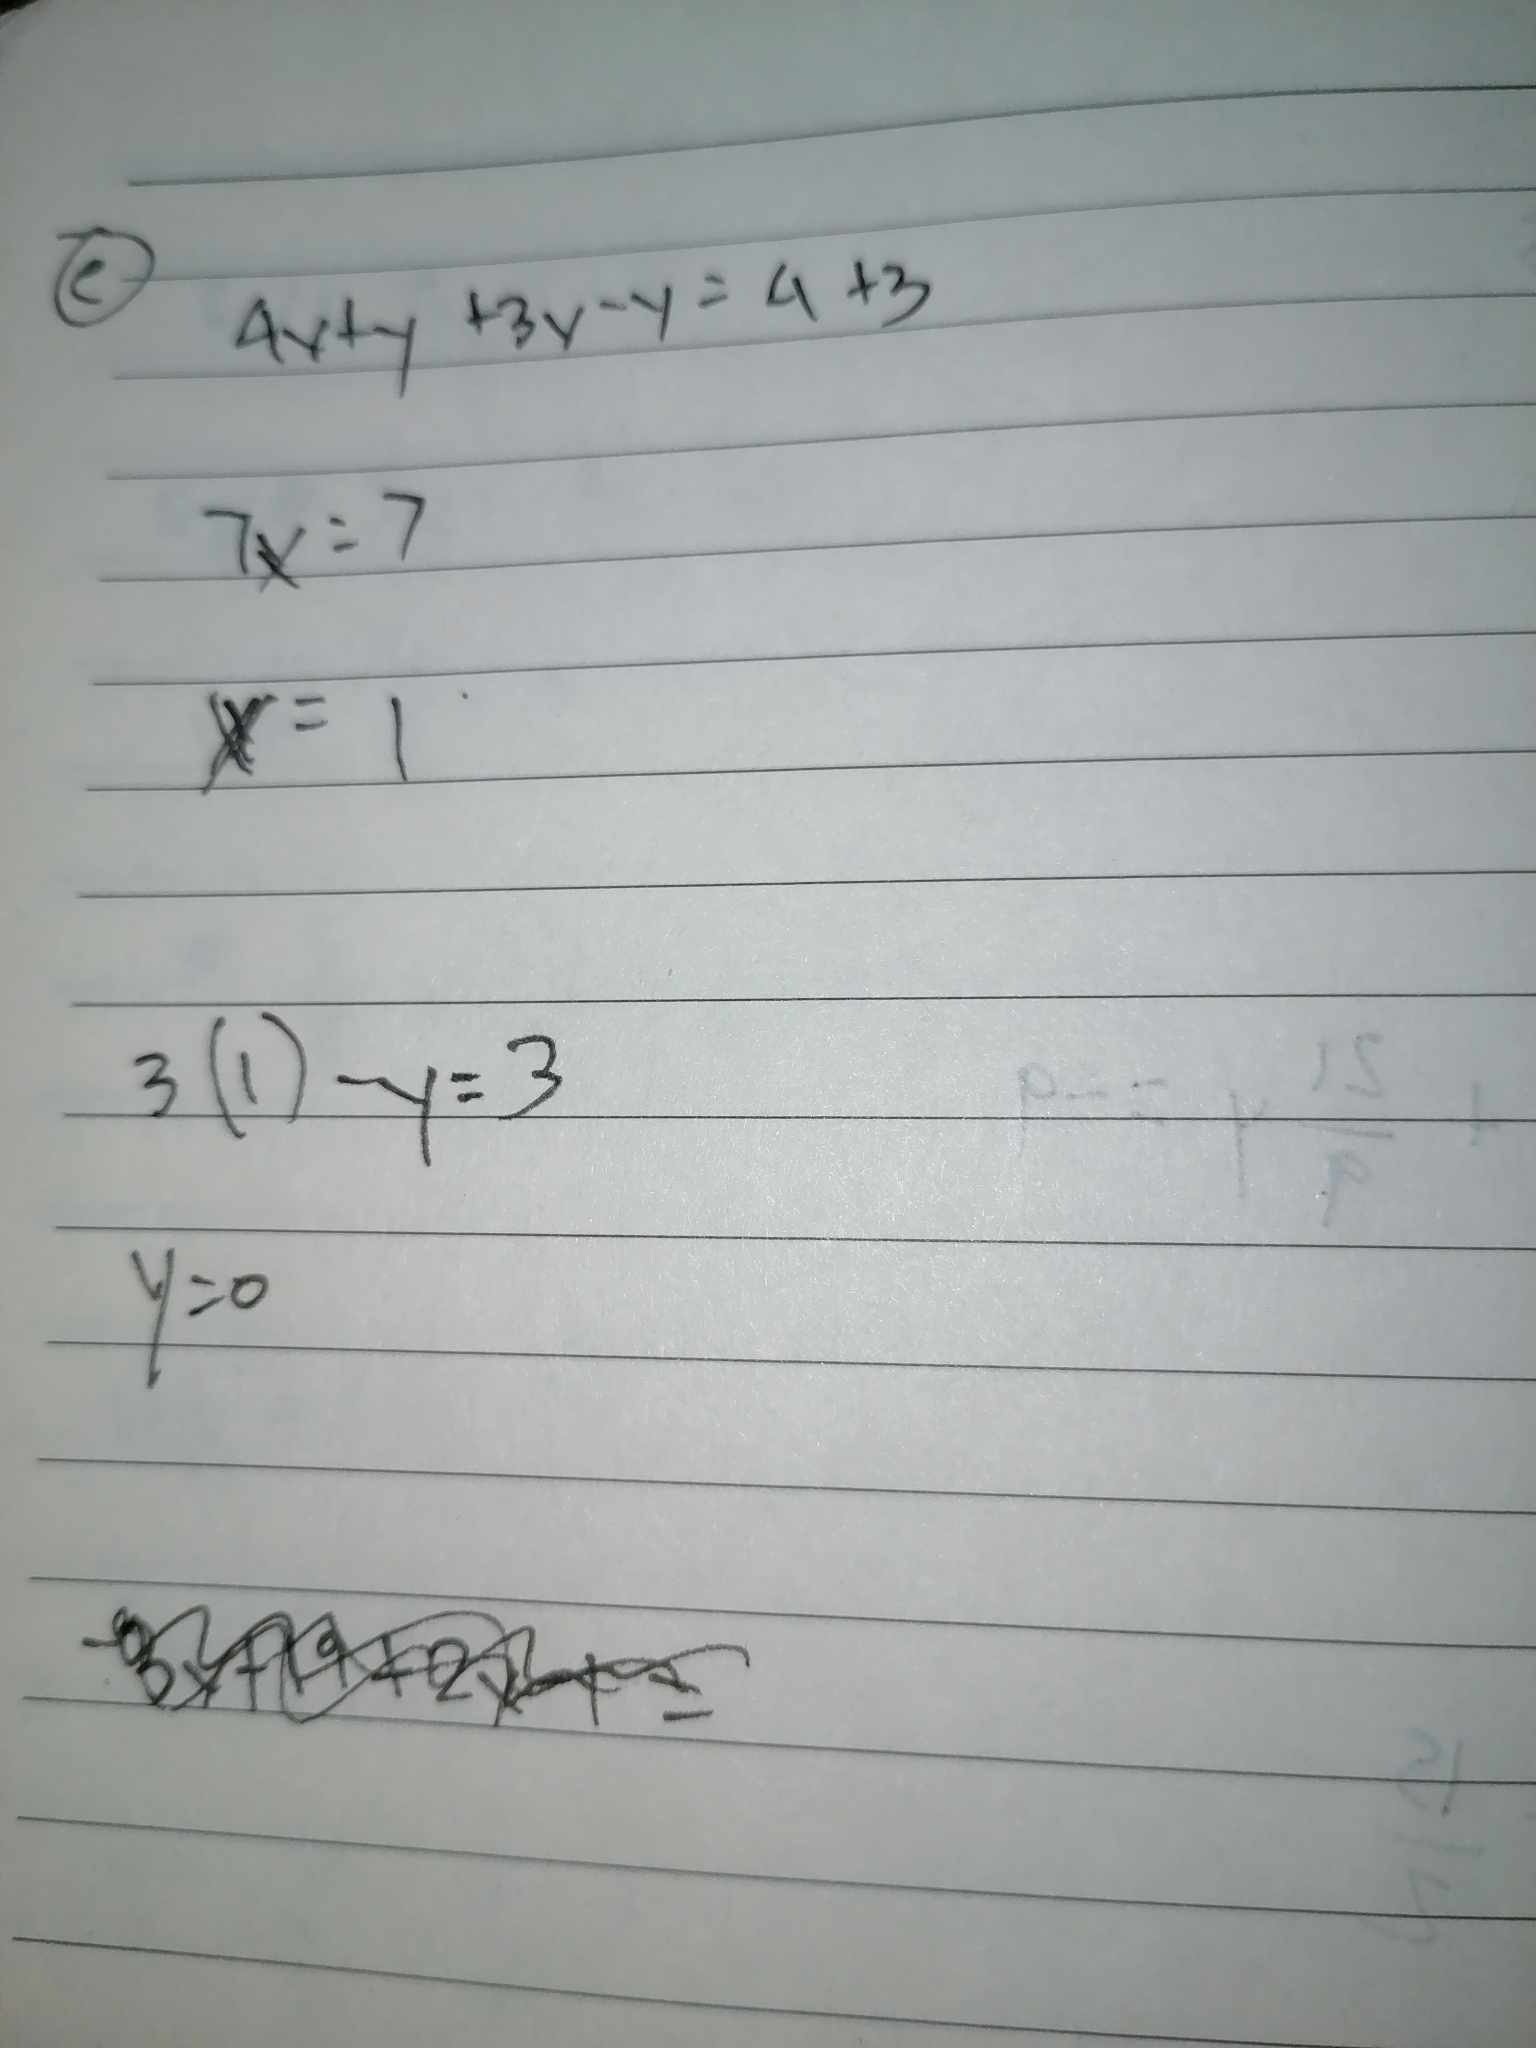 (e) 4x+y +3x-y = 4 +3
7x = 7
x = 1
3(1) -y = 3
y = 0